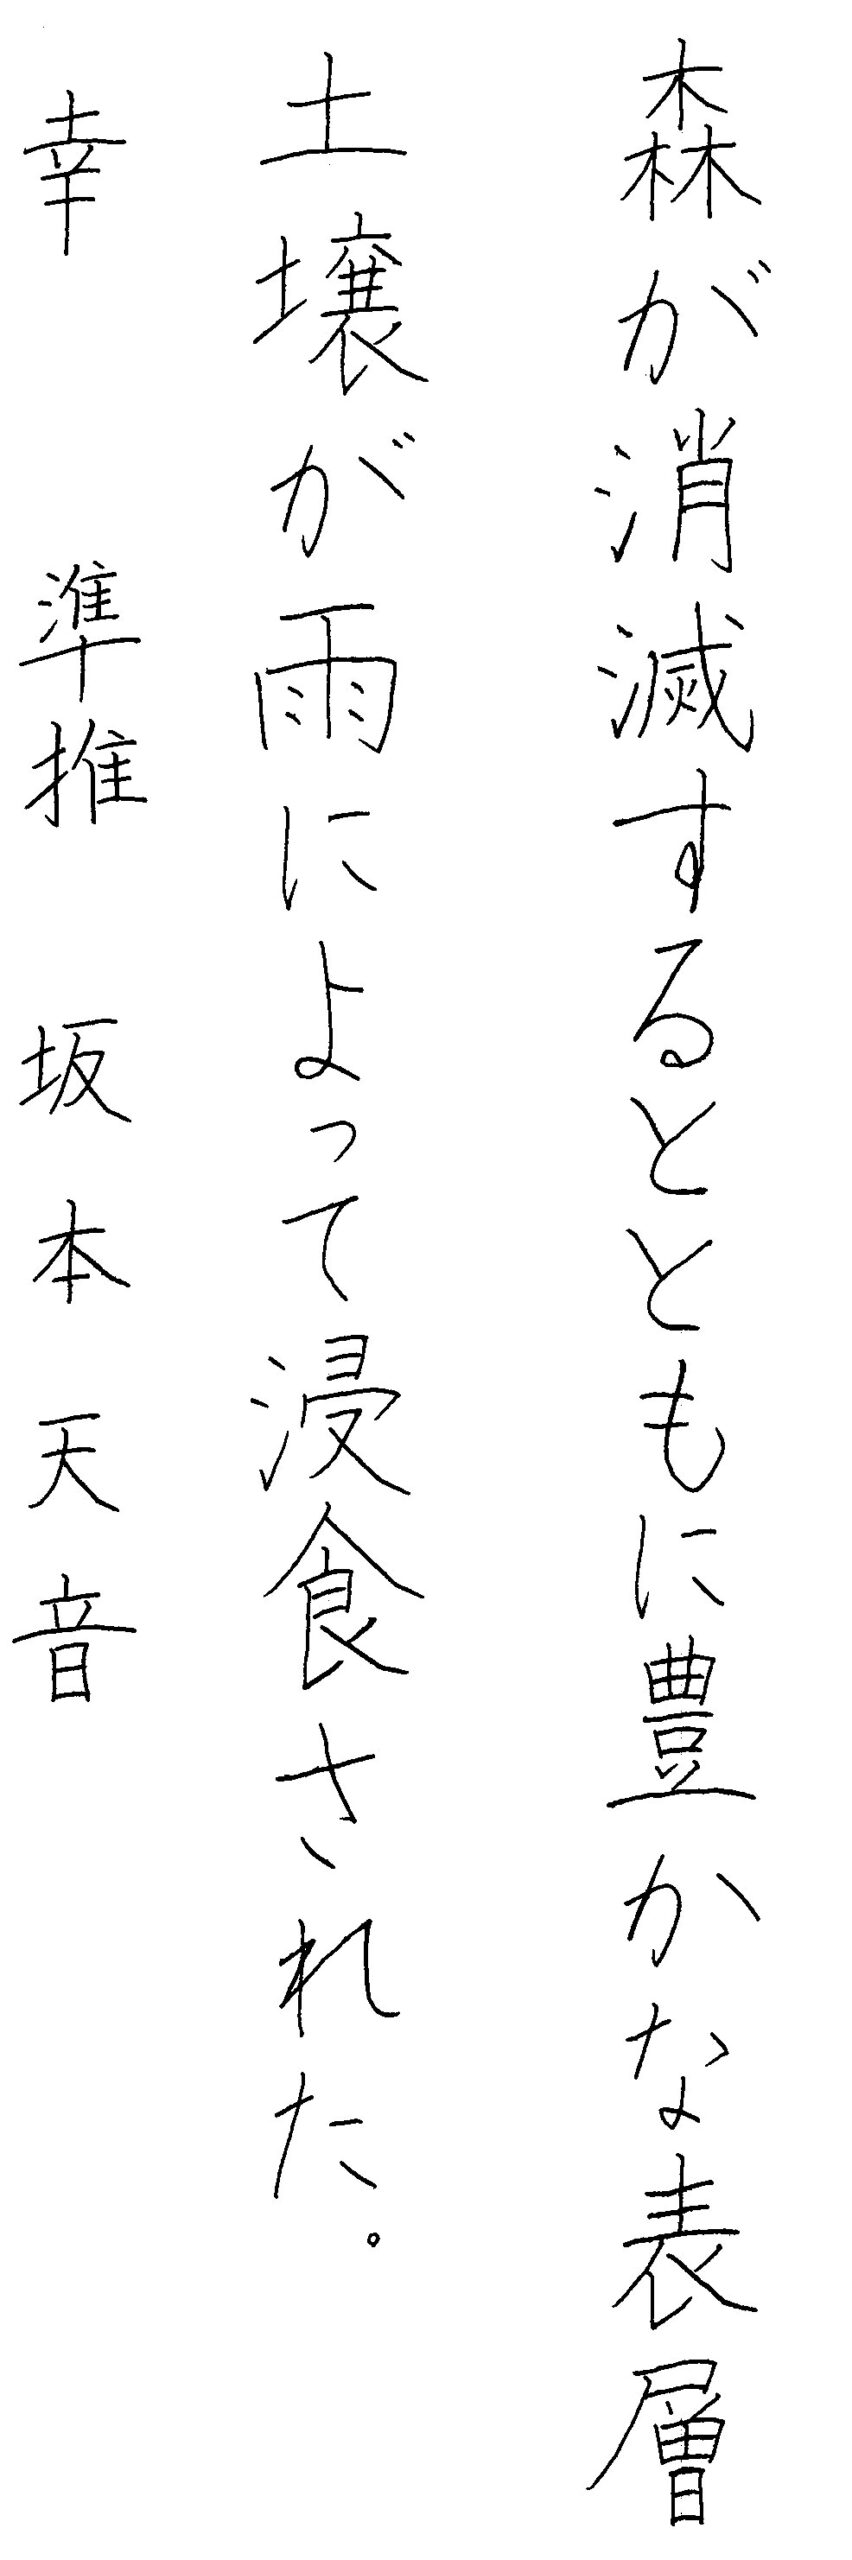 森が消滅するとともに豊かな表層
土壌が雨によって浸食された。
幸 準推 坂本天音